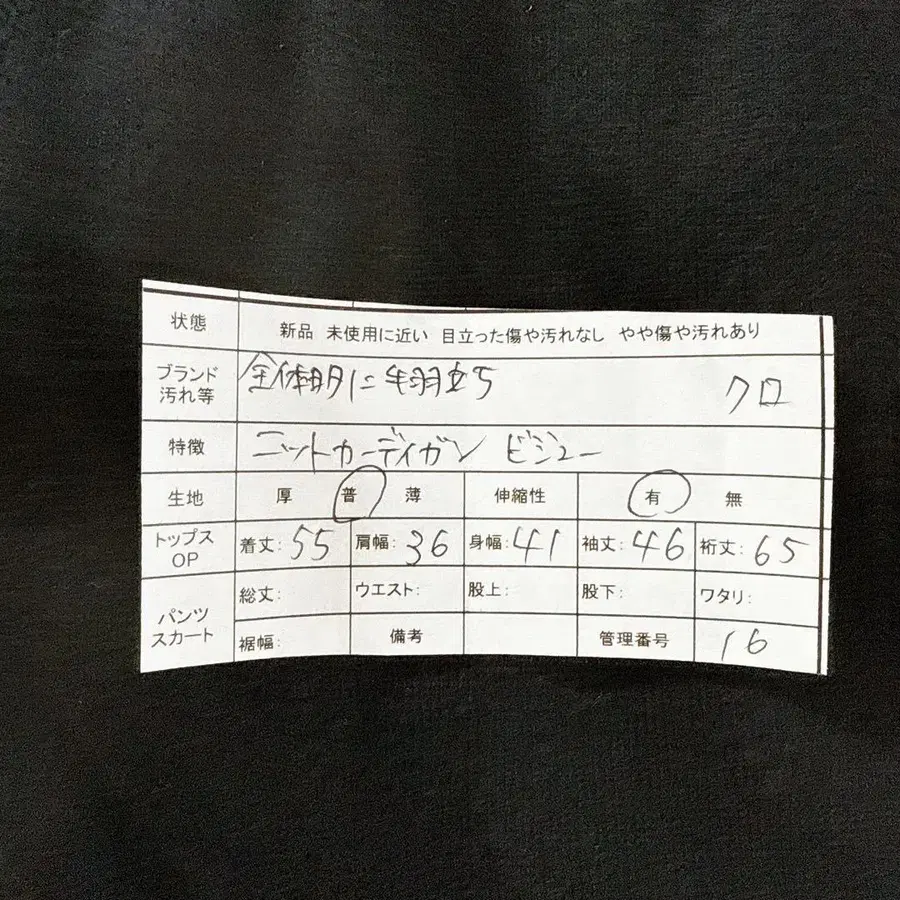 状態 新品 未使用に近い 目立った傷や汚れなし やや傷や汚れあり
ブランド 全体的に毛羽立ち クロ
汚れ等
特徴 ニットカーディガン ビジュー
生地 厚 普 薄 伸縮性 有 無
トップス 着丈:55 肩幅:36 身幅:41 袖丈:46 裄丈:65
OP
総丈: ウエスト: 股上: 股下: ワタリ:
パンツ
スカート
裾幅: 備考 管理番号 16